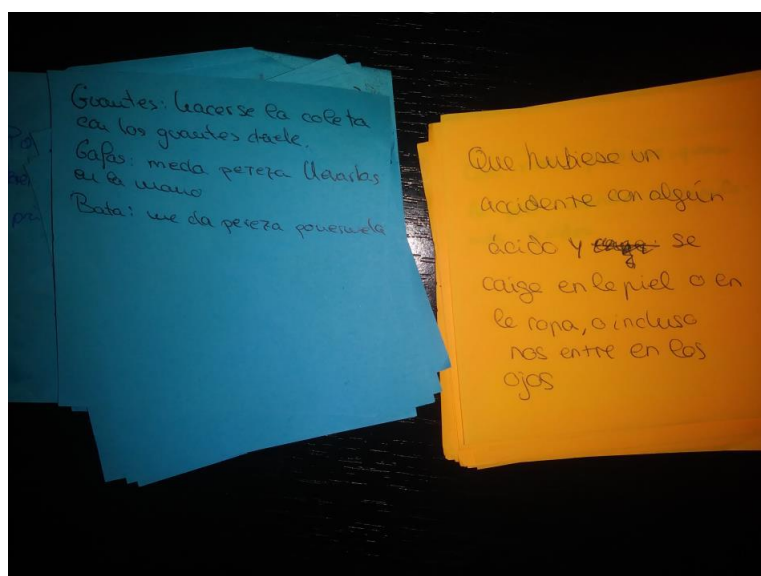 Guantes: hacerse la coleta
con los guantes
Gafas: me da pereza llevarlas
en la mano
Bata: me da pereza ponermela
Que hubiese un
accidente con algún
ácido y se
caiga en la piel o en
la ropa, o incluso
nos entre en los
ojos